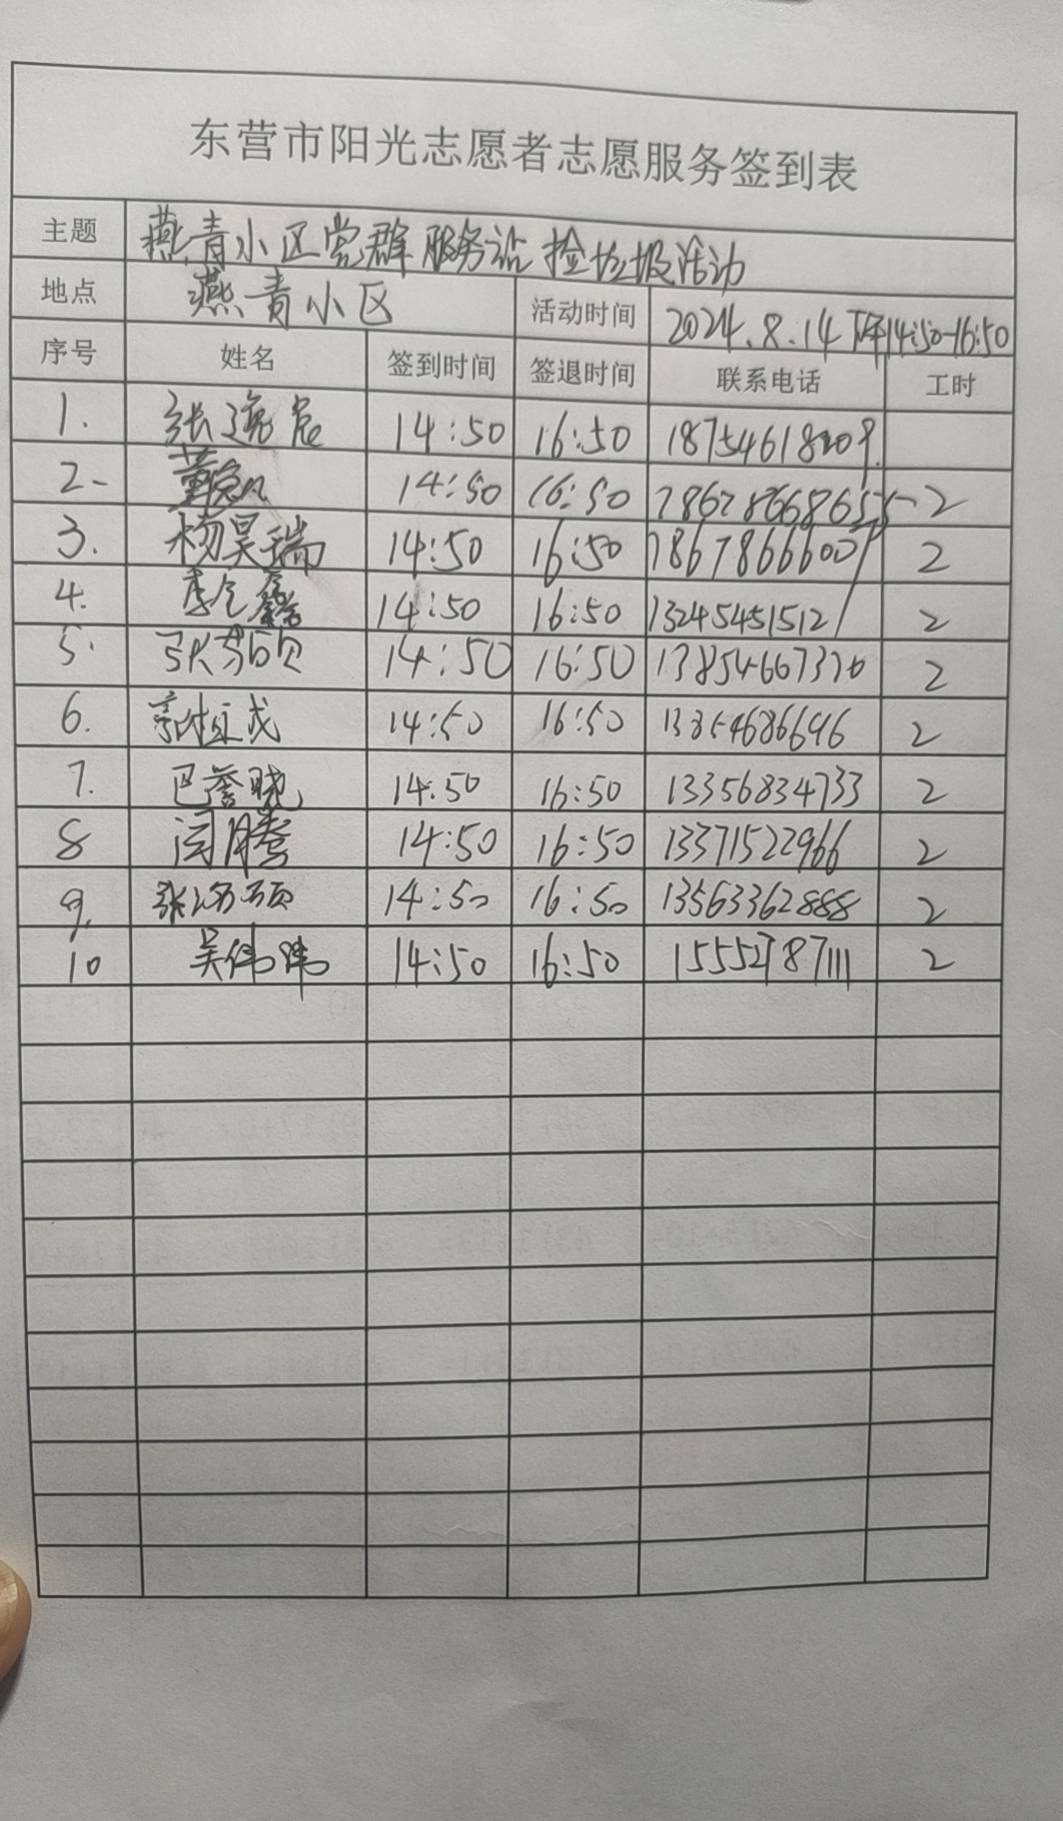 东营市阳光志愿者志愿服务签到表
主题 燕青小区党群服务站 捡垃圾活动
地点 燕青小区 活动时间 2024.8.14 下午14:50-16:50
序号 姓名 签到时间 签退时间 联系电话 工时
1. 张逸宸 14:50 16:50 18754618209
2- 14:50 16:50 2
3. 杨昊瑞 14:50 16:50 2
4. 李金鑫 14:50 16:50 13245451512 2
5. 14:50 16:50 13854667370 2
6. 14:50 16:50 13854686696 2
7. 巴誉晓 14:50 16:50 13356834733 2
8 闫腾 14:50 16:50 13371522966 2
9. 14:50 16:50 13563362888 2
10 吴伟玮 14:50 16:50 15552787111 2